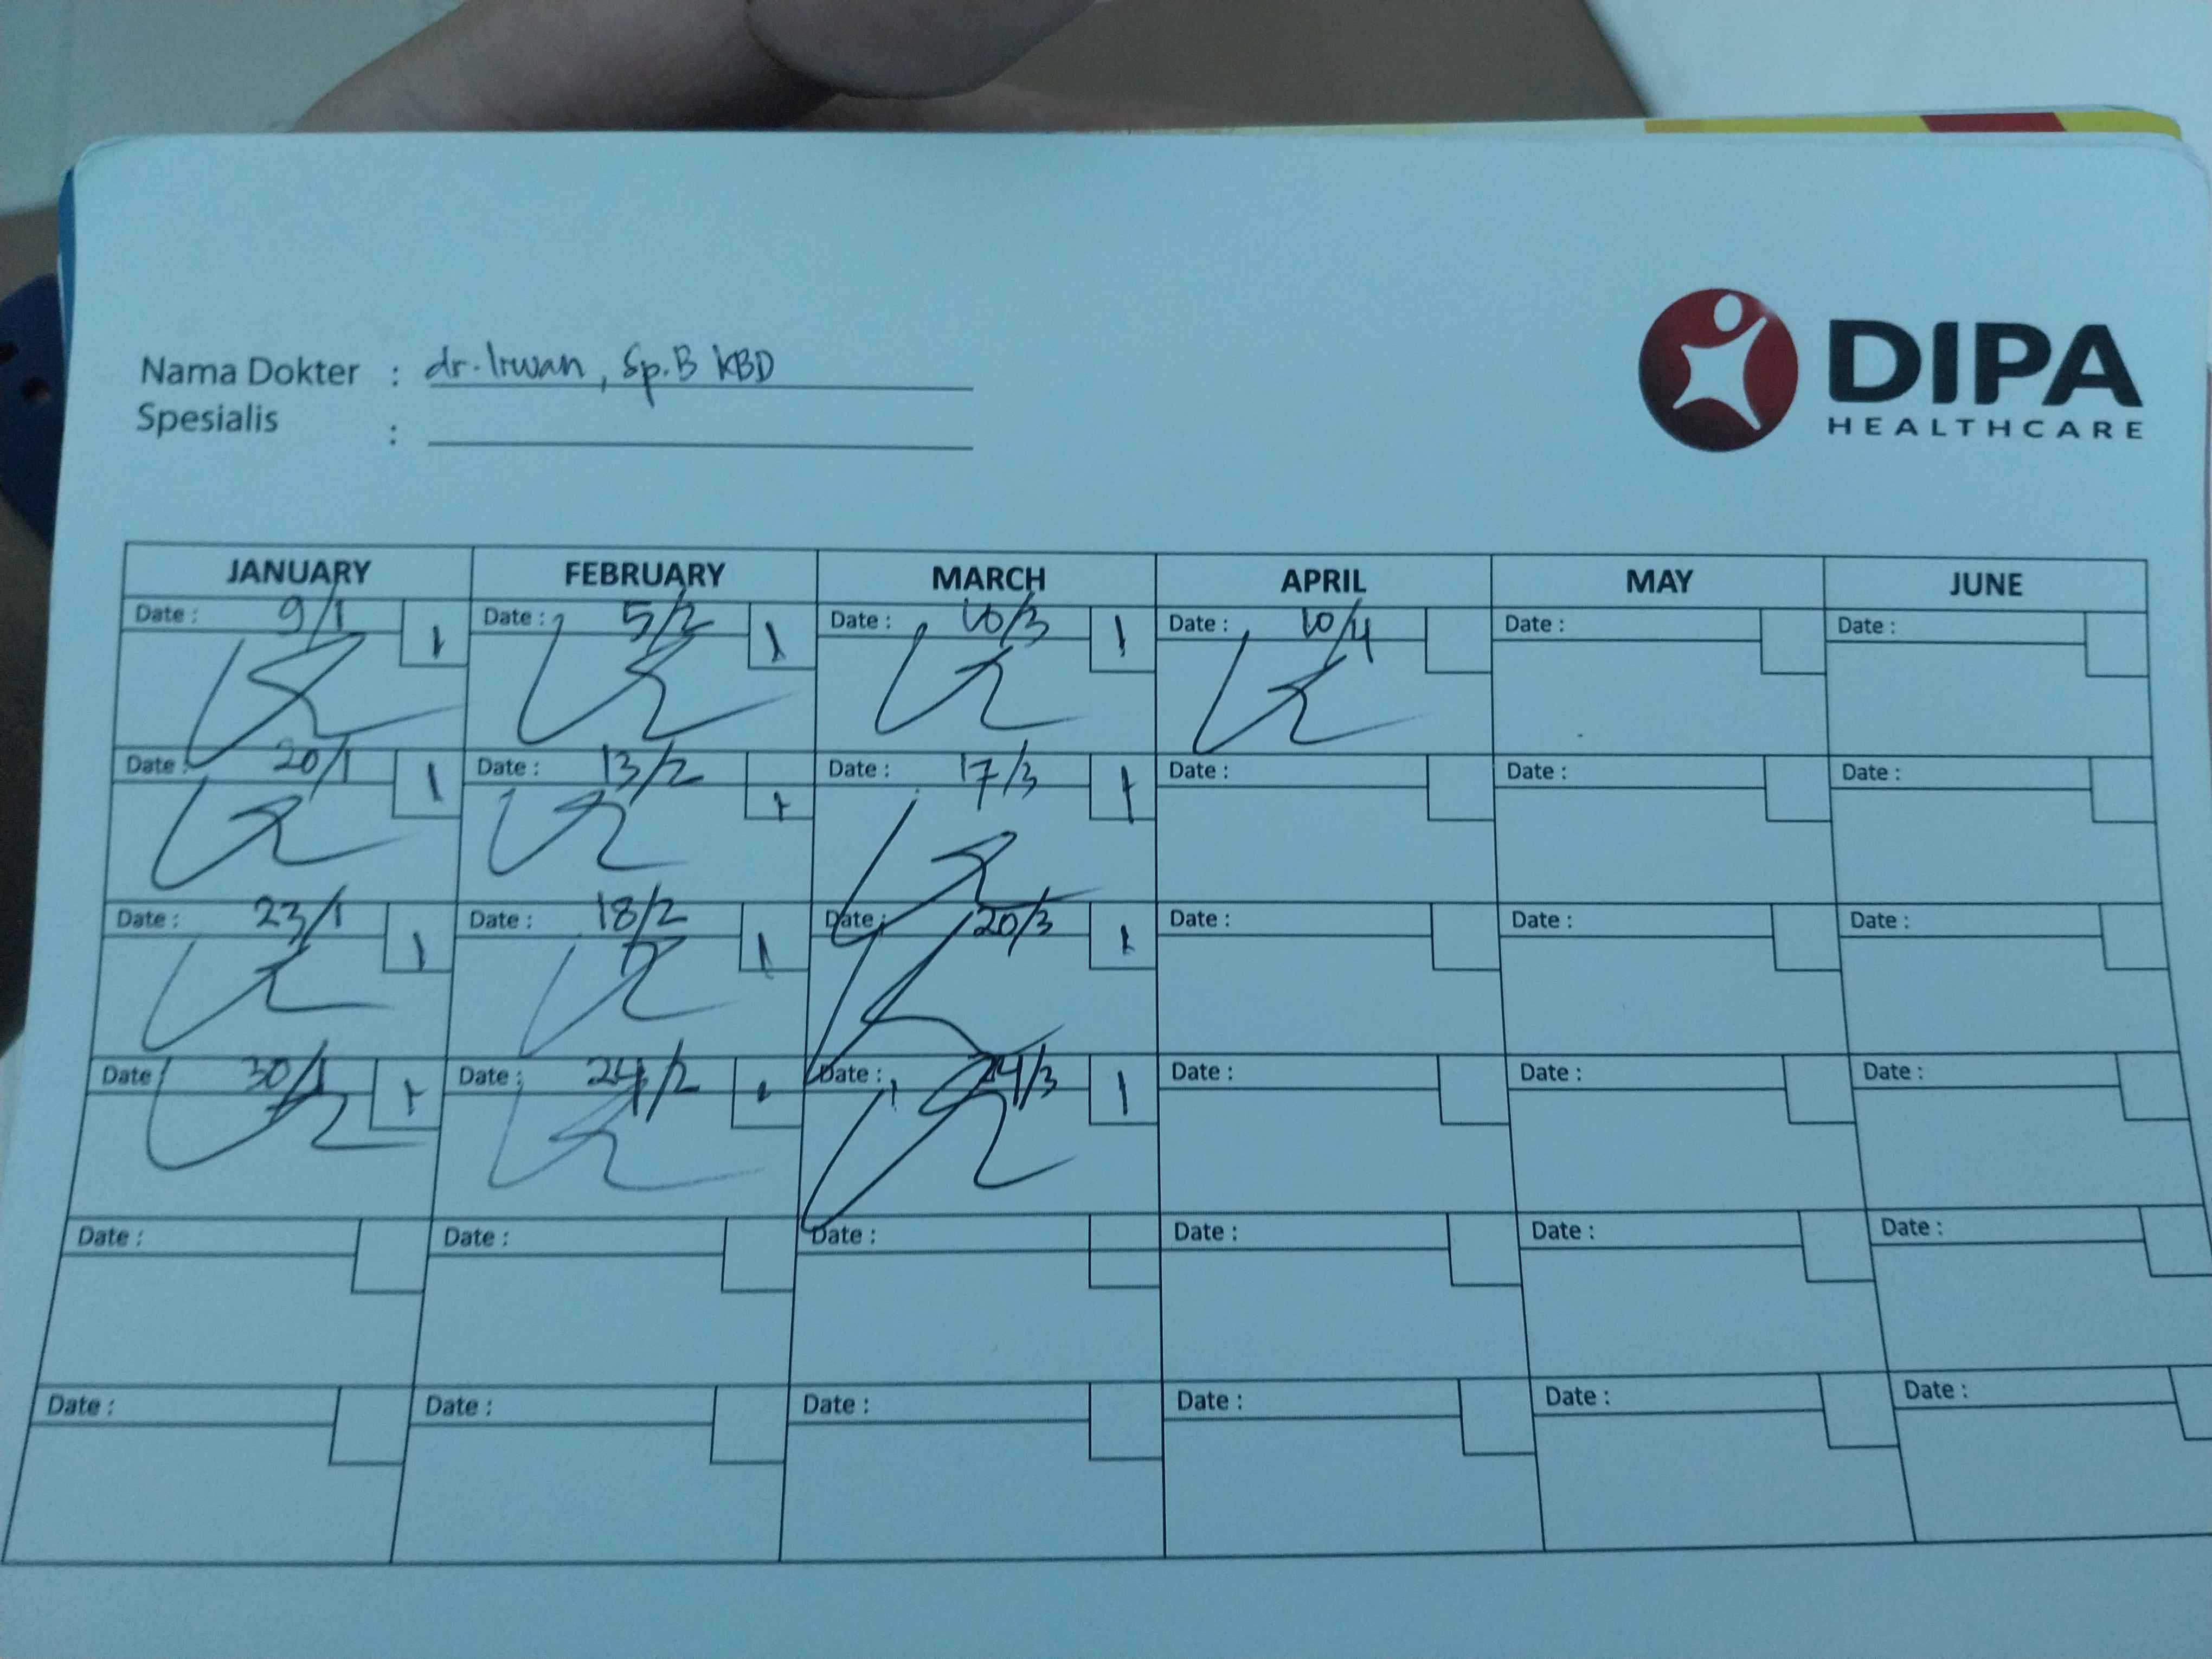 DIPA
HEALTHCARE
Nama Dokter : dr. Irwan, Sp.B KBD
Spesialis :
JANUARY FEBRUARY MARCH APRIL MAY JUNE
Date : 9/1 1 Date : 5/2 1 Date : 10/3 1 Date : 10/4 Date : Date :
Date : 20/1 1 Date : 13/2 1 Date : 17/3 1 Date : Date : Date :
Date : 23/1 1 Date : 18/2 1 Date : 20/3 1 Date : Date : Date :
Date 30/1 1 Date : 24/2 1 Date : 24/3 1 Date : Date : Date :
Date : Date : Date : Date : Date : Date :
Date : Date : Date : Date : Date : Date :